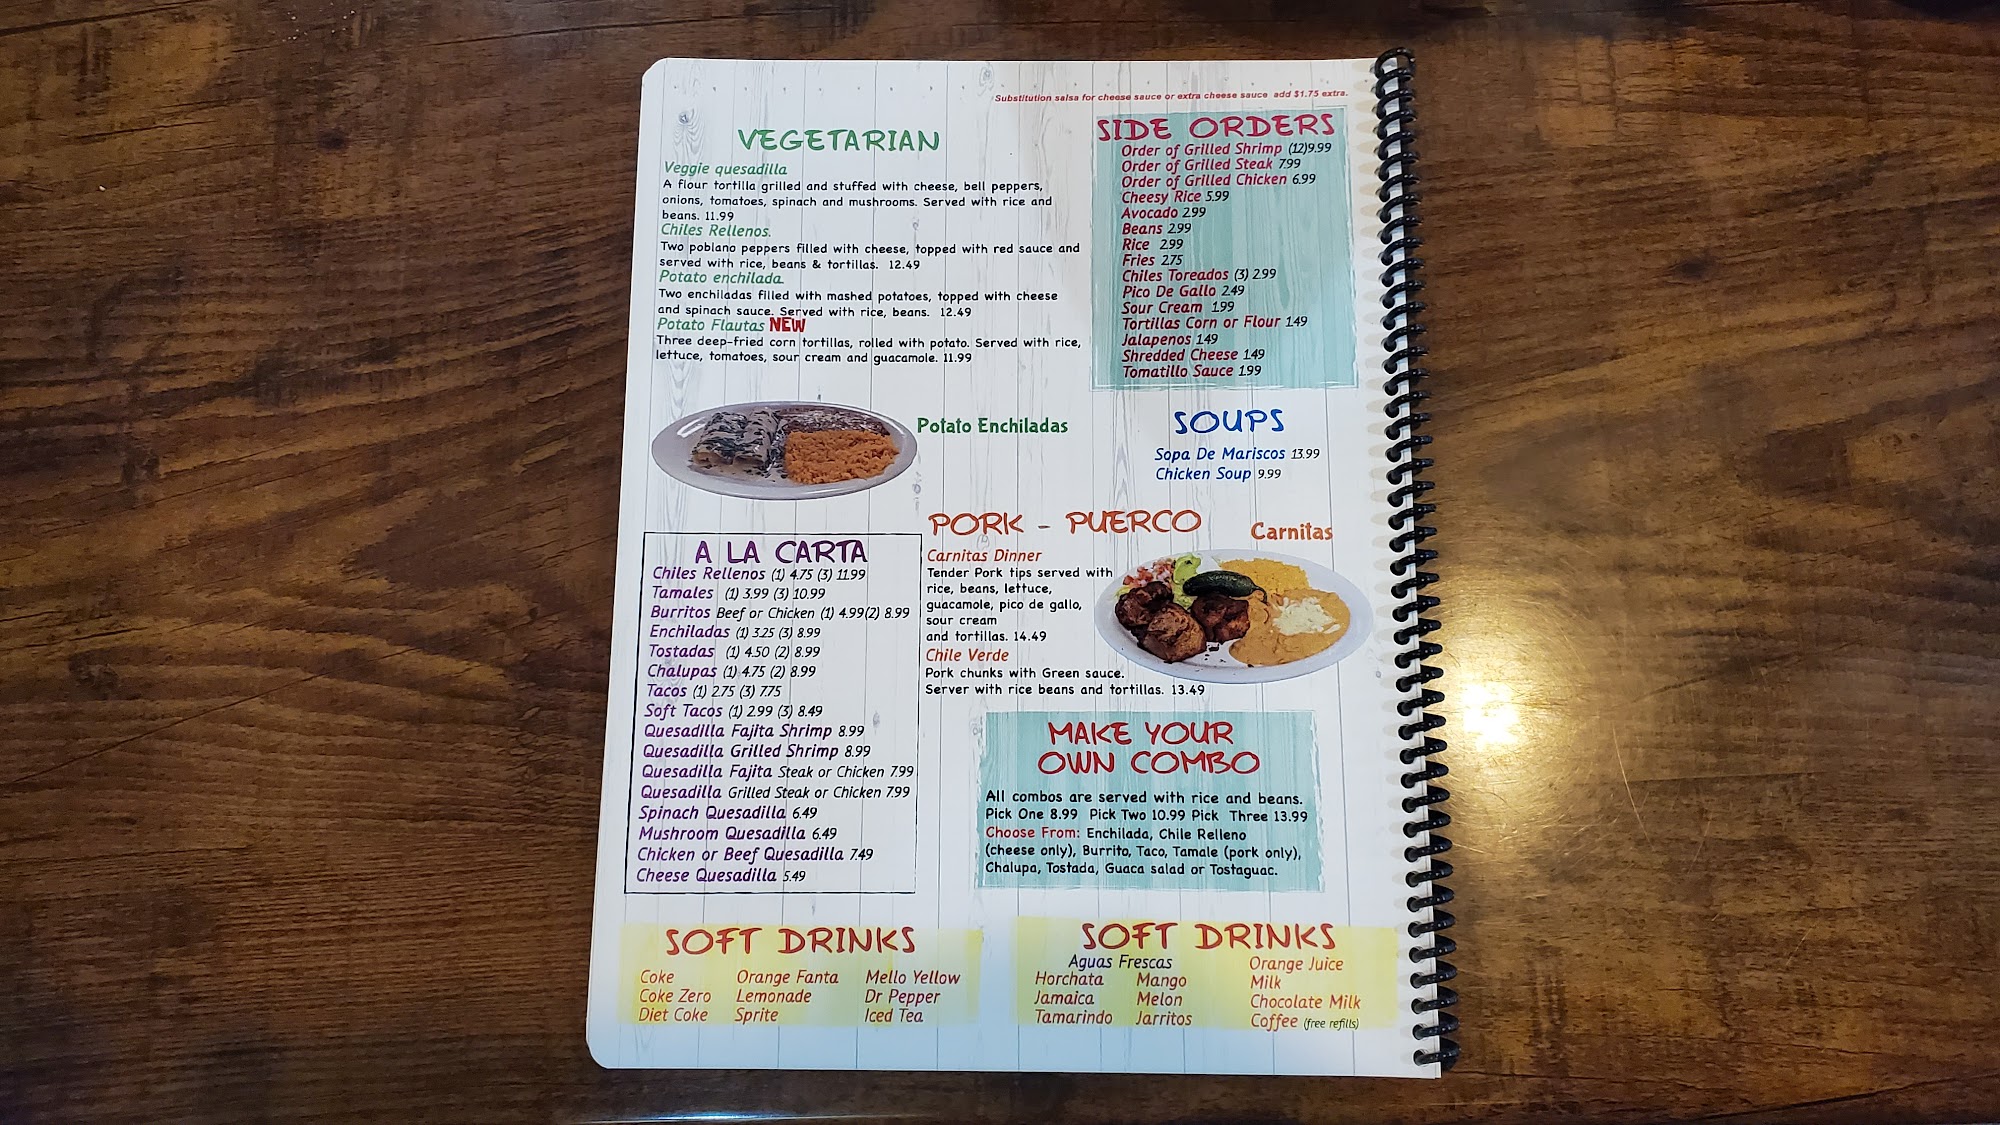 Substitution salsa for cheese sauce or extra cheese sauce add $1.75 extra.
VEGETARIAN
Veggie quesadilla
A flour tortilla grilled and stuffed with cheese, bell peppers,
onions, tomatoes, spinach and mushrooms. Served with rice and
beans. 11.99
Chiles Rellenos.
Two poblano peppers filled with cheese, topped with red sauce and
served with rice, beans & tortillas. 12.49
Potato enchilada
Two enchiladas filled with mashed potatoes, topped with cheese
and spinach sauce. Served with rice, beans. 12.49
Potato Flautas NEW
Three deep-fried corn tortillas, rolled with potato. Served with rice,
lettuce, tomatoes, sour cream and guacamole. 11.99
SIDE ORDERS
Order of Grilled Shrimp (12)9.99
Order of Grilled Steak 7.99
Order of Grilled Chicken 6.99
Cheesy Rice 5.99
Avocado 2.99
Beans 2.99
Rice 2.99
Fries 2.75
Chiles Toreados (3) 2.99
Pico De Gallo 2.49
Sour Cream 1.99
Tortillas Corn or Flour 1.49
Jalapenos 1.49
Shredded Cheese 1.49
Tomatillo Sauce 1.99
Potato Enchiladas
SOUPS
Sopa De Mariscos 13.99
Chicken Soup 9.99
PORK - PUERCO
Carnitas
Carnitas Dinner
Tender Pork tips served with
rice, beans, lettuce,
guacamole, pico de gallo,
sour cream
and tortillas. 14.49
Chile Verde
Pork chunks with Green sauce.
Server with rice beans and tortillas. 13.49
A LA CARTA
Chiles Rellenos (1) 4.75 (3) 11.99
Tamales (1) 3.99 (3) 10.99
Burritos Beef or Chicken (1) 4.99(2) 8.99
Enchiladas (1) 3.25 (3) 8.99
Tostadas (1) 4.50 (2) 8.99
Chalupas (1) 4.75 (2) 8.99
Tacos (1) 2.75 (3) 7.75
Soft Tacos (1) 2.99 (3) 8.49
Quesadilla Fajita Shrimp 8.99
Quesadilla Grilled Shrimp 8.99
Quesadilla Fajita Steak or Chicken 7.99
Quesadilla Grilled Steak or Chicken 7.99
Spinach Quesadilla 6.49
Mushroom Quesadilla 6.49
Chicken or Beef Quesadilla 7.49
Cheese Quesadilla 5.49
MAKE YOUR
OWN COMBO
All combos are served with rice and beans.
Pick One 8.99 Pick Two 10.99 Pick Three 13.99
Choose From: Enchilada, Chile Relleno
(cheese only), Burrito, Taco, Tamale (pork only),
Chalupa, Tostada, Guaca salad or Tostaguac.
SOFT DRINKS
Coke Orange Fanta Mello Yellow
Coke Zero Lemonade Dr Pepper
Diet Coke Sprite Iced Tea
SOFT DRINKS
Aguas Frescas Orange Juice
Horchata Mango Milk
Jamaica Melon Chocolate Milk
Tamarindo Jarritos Coffee (free refills)